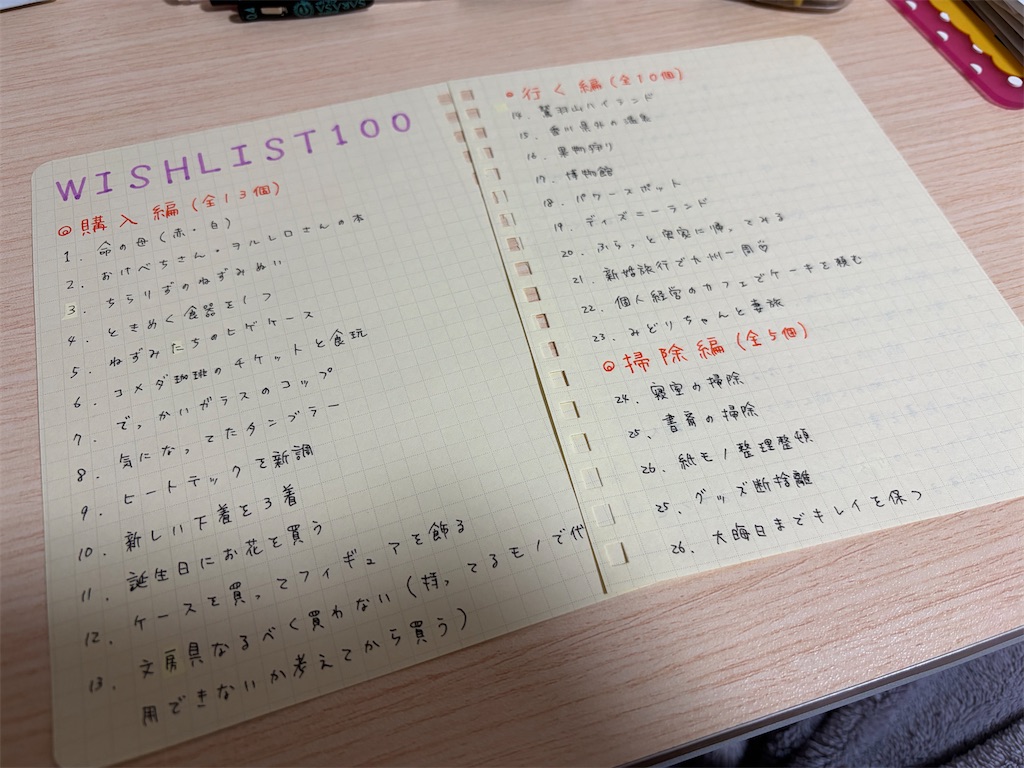 WISHLIST100
購入編(全13個)
1. 命の母(赤・白)
2. おけぺちさん・ヲルレロさんの本
3. ちらりずのねずみぬい
4. ときめく食器を1つ
5. ねずみたちのヒゲケース
6. コメダ珈琲のチケットと食玩
7. でっかいガラスのコップ
8. 気になってたタンブラー
9. ヒートテックを新調
10. 新しい下着を3着
11. 誕生日にお花を買う
12. ケースを買ってフィギュアを飾る
13. 文房具なるべく買わない(持ってるモノで代
用できないか考えてから買う)
行く編(全10個)
14. 鷲羽山ハイランド
15. 香川県外の温泉
16. 果物狩り
17. 博物館
18. パワースポット
19. ディズニーランド
20. ふらっと実家に帰ってみる
21. 新婚旅行で九州一周
22. 個人経営のカフェでケーキを頼む
23. みどりちゃんと妻旅
掃除編(全5個)
24. 寝室の掃除
25. 書斎の掃除
26. 紙モノ整理整頓
25. グッズ断捨離
26. 大晦日までキレイを保つ
SARASA